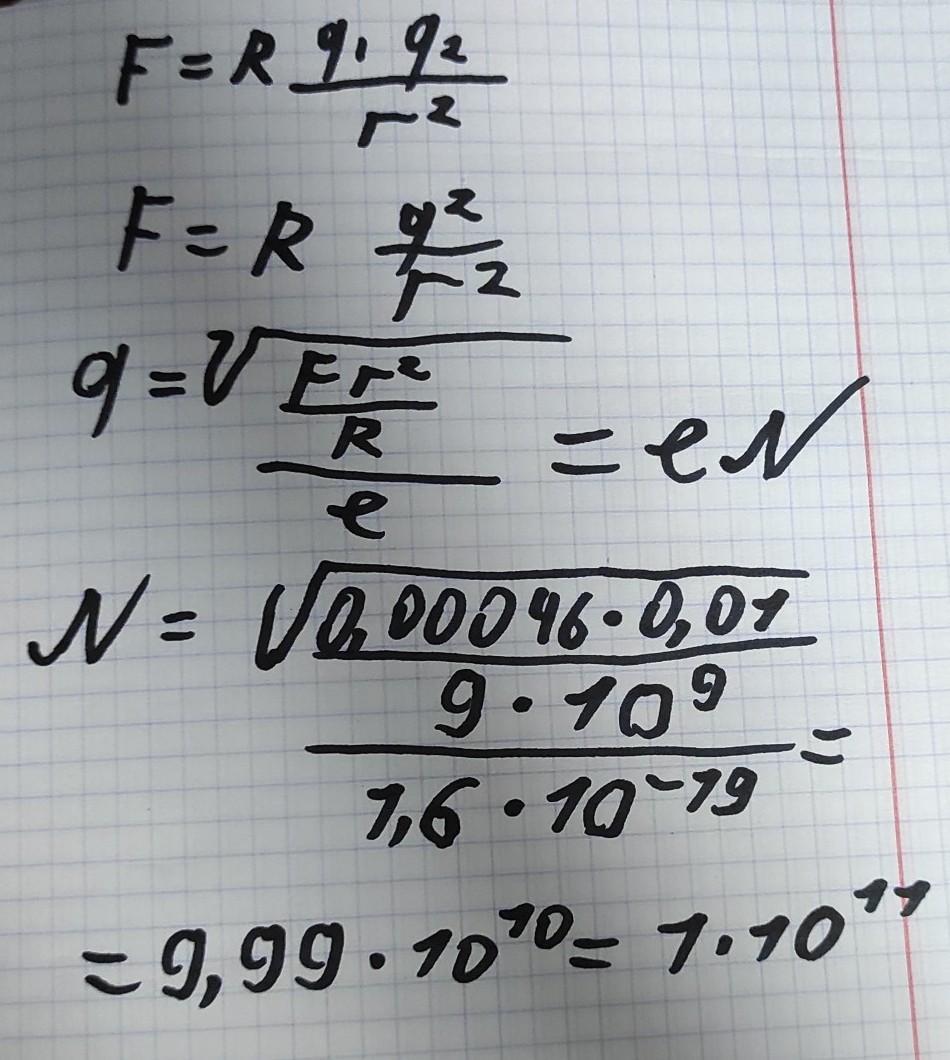 F = R q₁ q₂ / r²
F = R q² / r²
q = √(F r² / R) / e = e N
N = √(0,00046 · 0,01 / 9 · 10⁹) / 1,6 · 10⁻¹⁹ =
= 9,99 · 10¹⁰ = 1 · 10¹¹